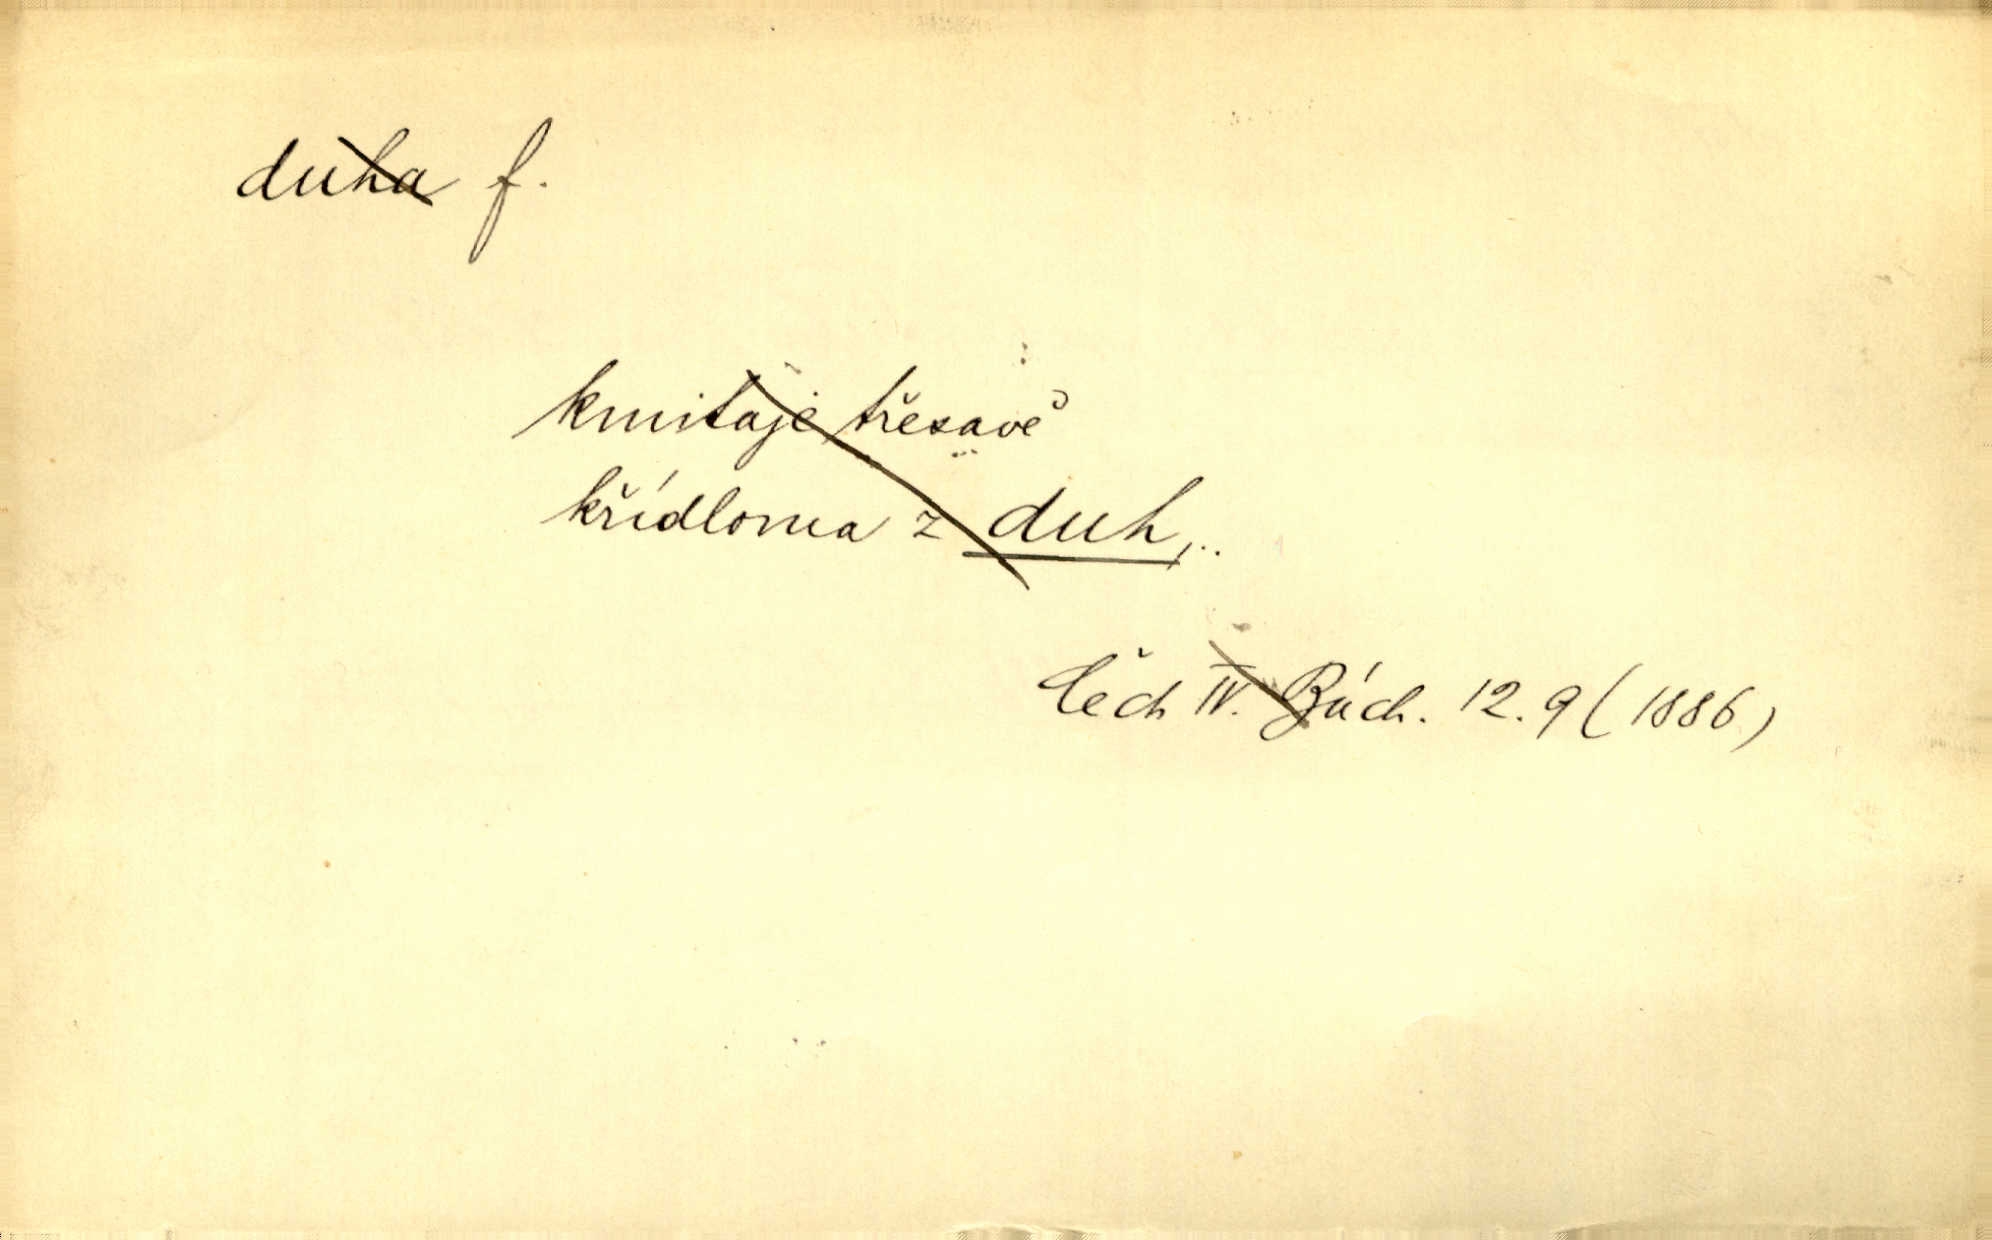 duha f.
kmitaje třesavě
křídloma z duh,..
Čech IV. Bách. 12.9 (1886)